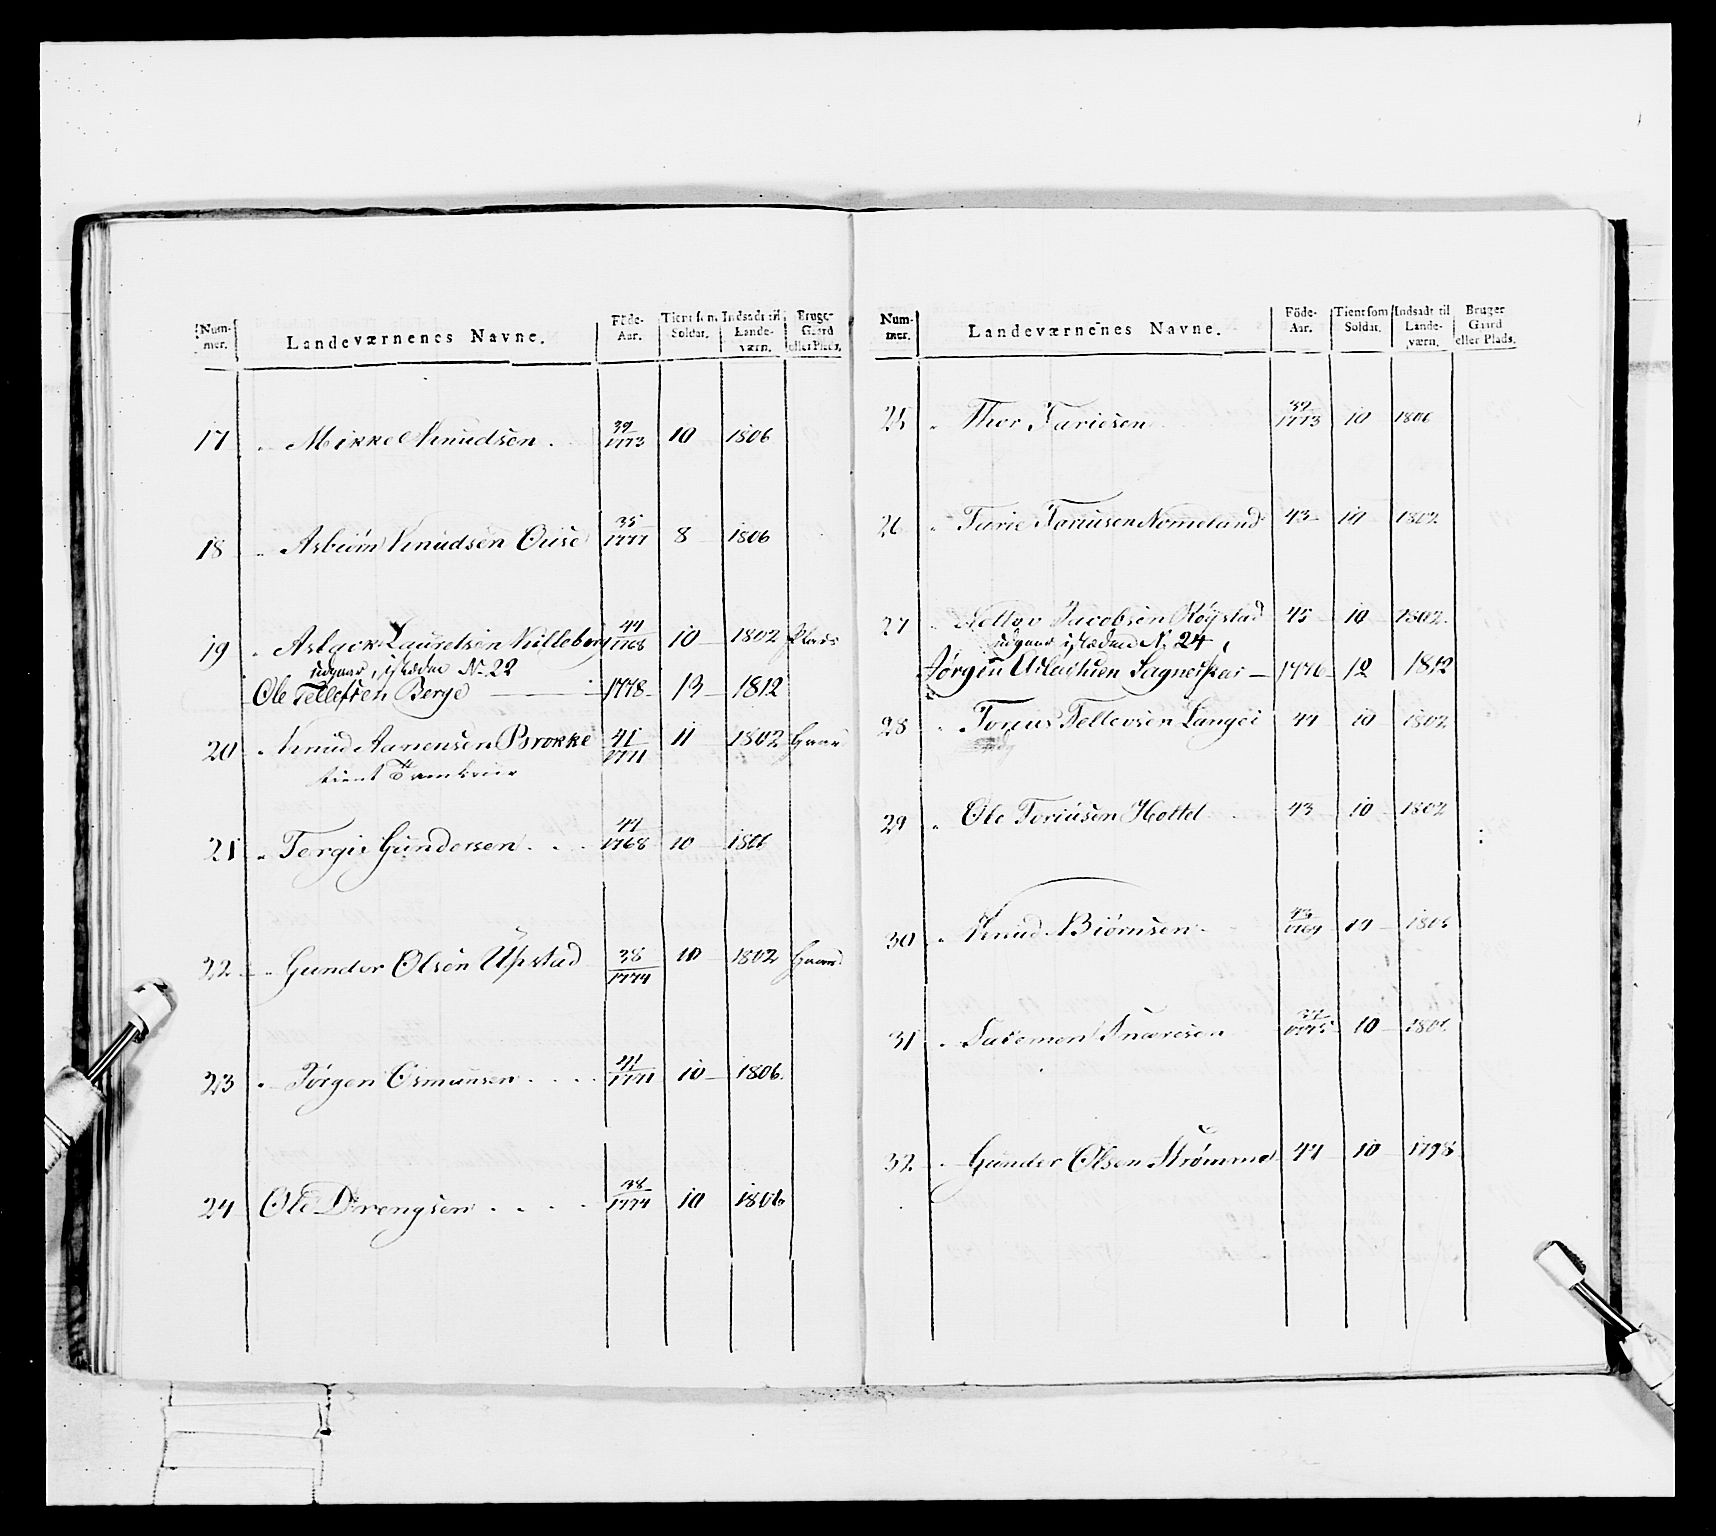 Num-mer. Landeværnenes Navne. Föde-Aar. Tient som Soldat. Indsadt til Lande-værn. Bruger Gaard eller Plads.
17 " Mikkel Knudsen . 39/1773 10 1806
18 " Asbiörn Knudsen Ouse 35/1777 8 1806
19 " Aslack Lauretsen Killeberg 44/1768 10 1802 Plads
udgaar, isteden No 22
Ole Tellefsen Berge 1778 13 1812
20 " Knud Aanensen Brokke 41/1771 11 1802 Gaard
tient
21 " Tergie Gundersen . . . 44/1768 10 1806
22 " Gunder Olsen Upstad 38/1774 10 1802 Gaard
23 " Jørgen Osmunsen . . . . 41/1771 10 1806.
24 Ole Drengsen . . . . 38/1774 10 1806
Num-mer. Landeværnenes Navne. Föde-Aar. Tient som Soldat. Indsadt til Lande-værn. Bruger Gaard eller Plads.
25 " Thor Tariesen 39/1773 10 1806
26 " Tarie Tariusen Nomeland 43 10 1802
27 " Jacobsen Røystad 45 10 1802.
udgaar isteden N. 24
Jørgen 1776 12 1812
28 " Torius Tellevsen Langei 44 10 1802
29 " Ole Toriusen Hottel 43 10 1802
30 " Knud Biörnsen 43/1769 14 1806
31 " Salemon Knaresen 37/1775 10 1806
32 " Gunder Olsen Strömme 44 10 1798